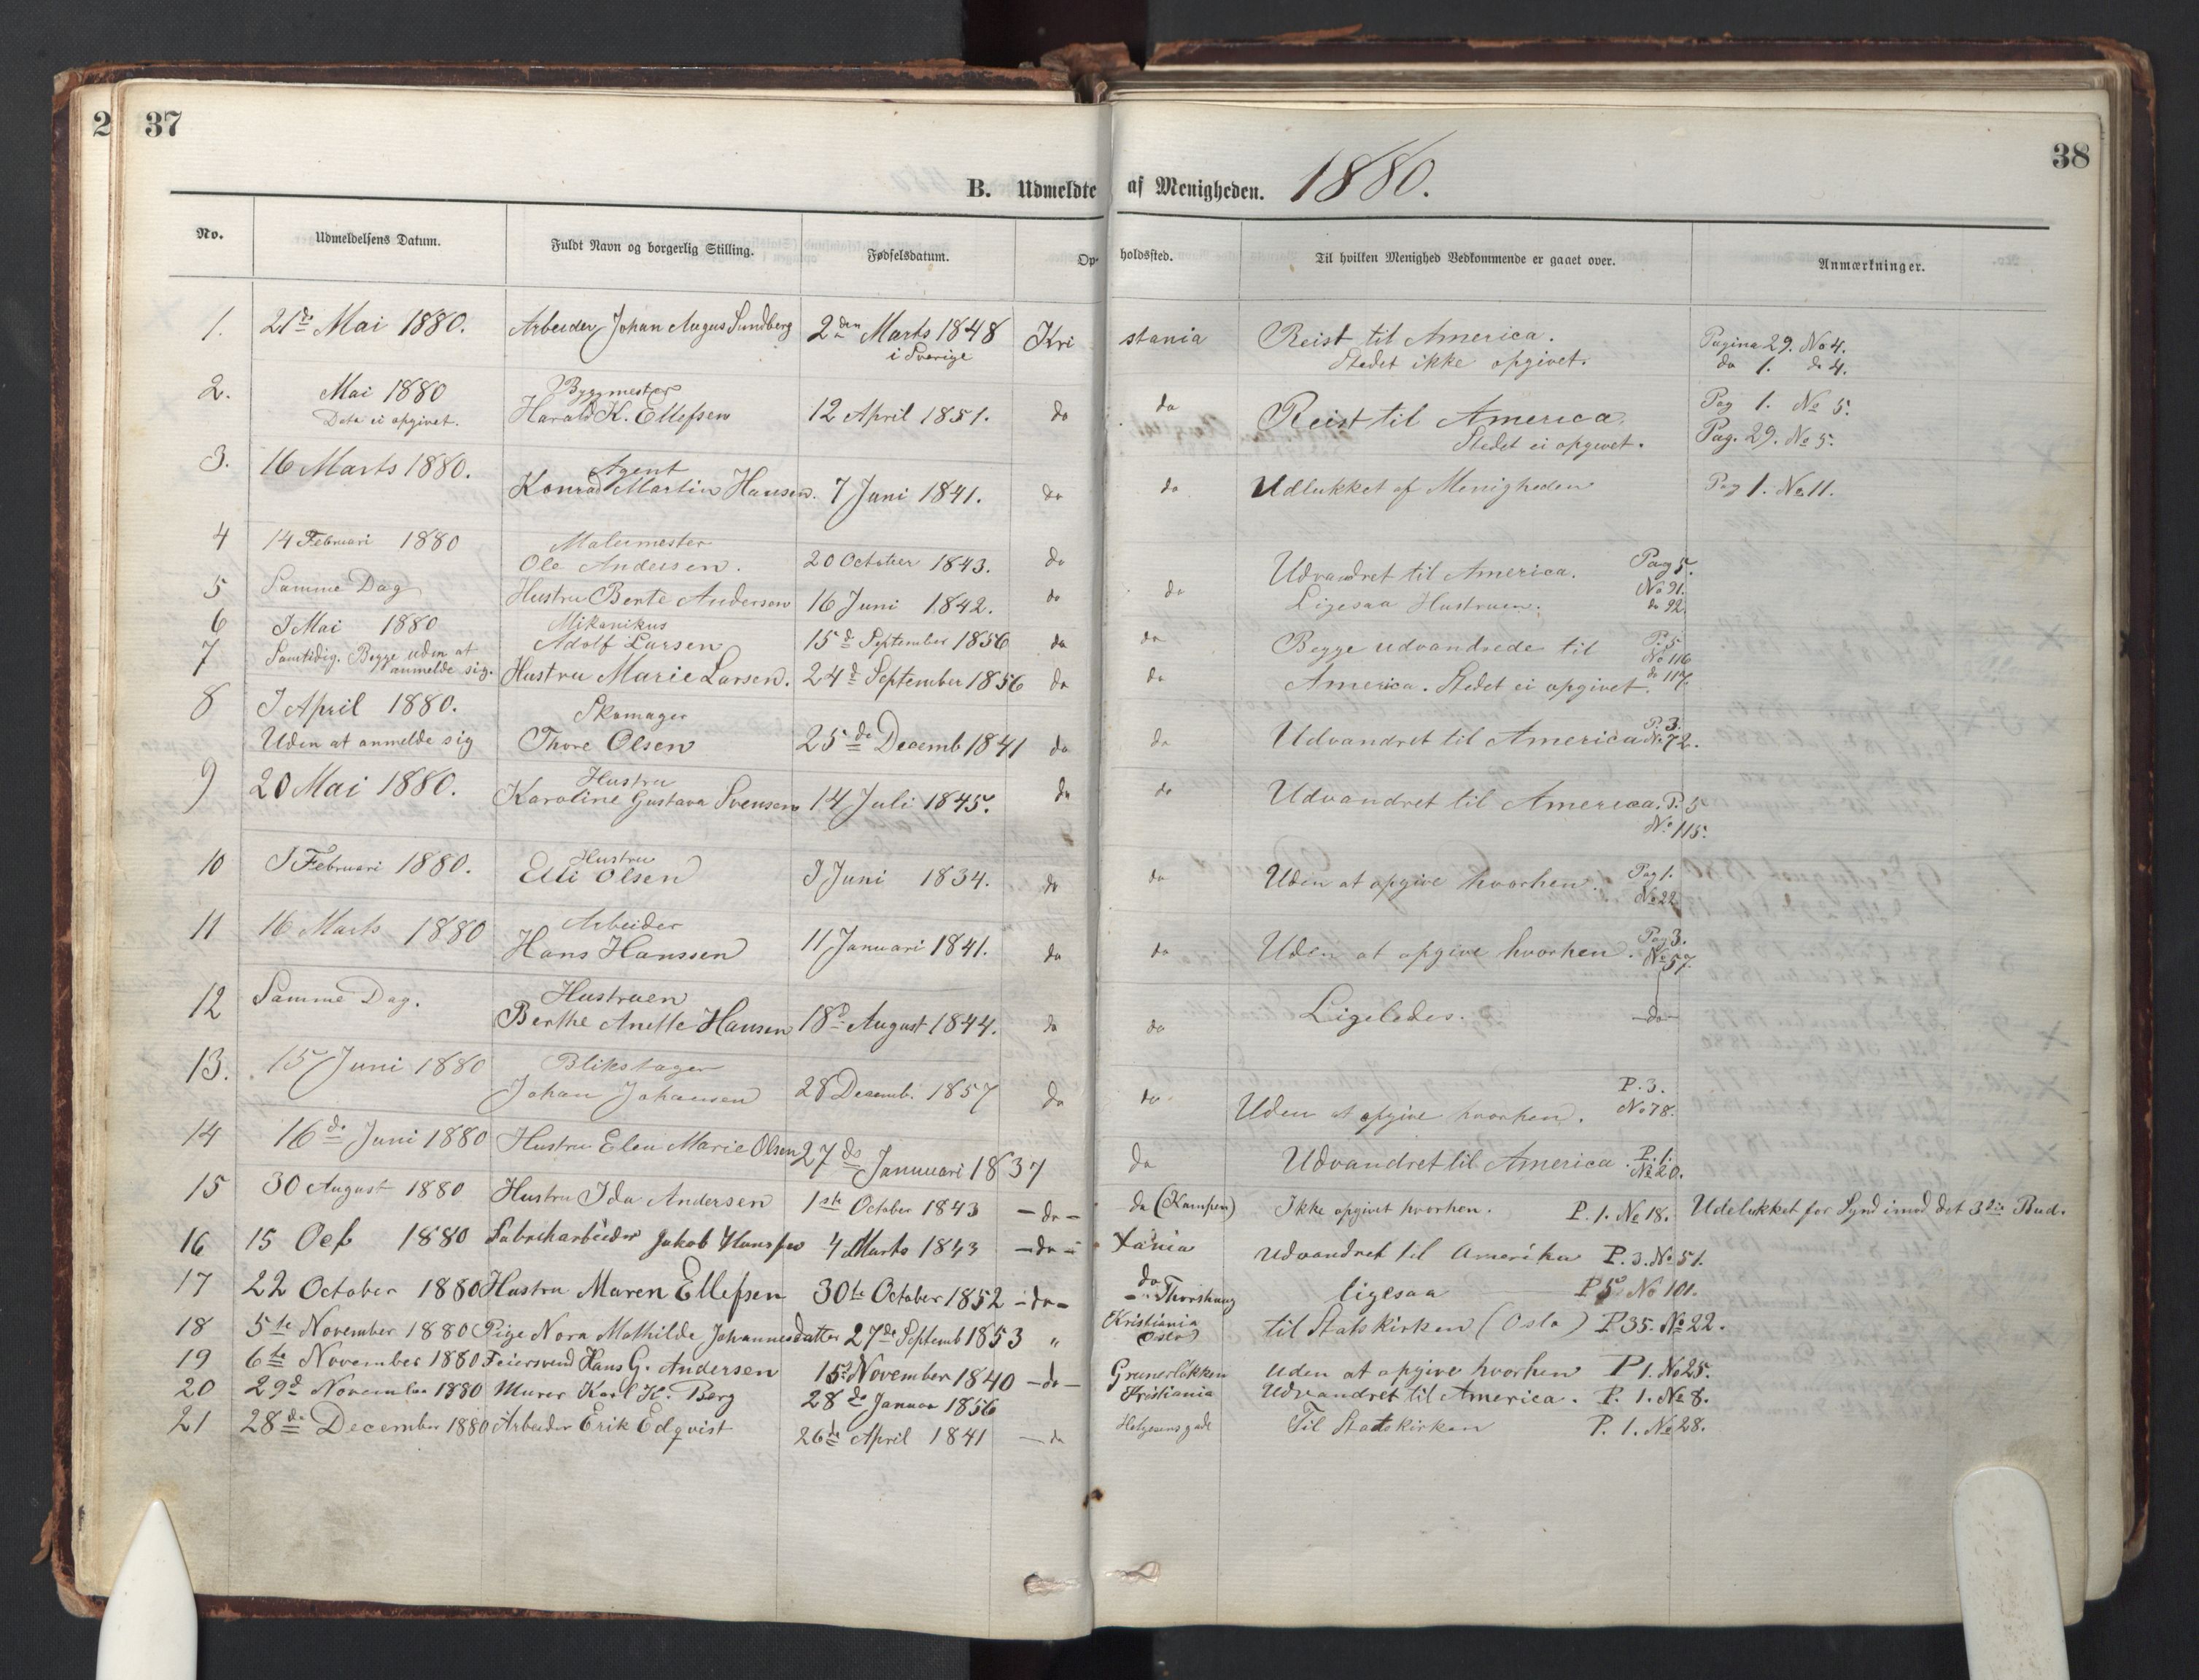 2 37
38
B. Udmeldte af Menigheden. 1880.
No. Udmeldelsens Datum. Fuldt Navn og borgerlig Stilling. Fødselsdatum. Opholdssted. Til hvilken Menighed Vedkommende er gaaet over. Anmærkninger.
1. 21de Mai 1880. Arbeider Johan Augus Sundberg 2den Marts 1848 Kristania Reist til America. Pagina 29. No 4.
i Sverige Stedet ikke opgivet. do 1. do 4.
2. Mai 1880 Byggmester Pag 1. No 5.
Data ei opgivet. Harald K. Ellefsen 12 April 1851. do do Reist til America Pag. 29. No 5.
Stedet ei opgivet.
3. 16 Marts 1880. Agent
Konrad Martin Hansen. 7 Juni 1841. do do Udlukket af Menigheden Pag 1. No 11.
4 14 Februari 1880 Malermester
Ole Andersen. 20 October 1843. do Udvandret til America. Pag 5.
No 91.
5 Samme Dag Hustru Berte Andersen 16 Juni 1842. do do Ligesaa Hustruen. do 92.
6 I Mai 1880 Mikanikus
Adolf Larsen 15d September 1856 do do Begge udvandrede til P. 5
No 116
7 Samtidig. Begge uden at
anmelde sig. Hustru Marie Larsen. 24d September 1856 do do America. Stedet ei opgivet. do 117.
8 I April 1880. Skomager P. 3.
Uden at anmelde sig Thore Olsen 25de Decemb 1841 do do Udvandret til America No 72.
9 20 Mai 1880. Hustru
Karoline Gustava Svensen 14 Juli 1845. do do Udvandret til America. P. 5
No 115.
10 I Februari 1880. Hustru
Elli Olsen I Juni 1834. do do Uden at opgive hvorhen. Pag 1.
No 22
11 16 Marts 1880 Arbeider
Hans Hanssen 11 Januari 1841. do do Uden at opgive hvorhen. Pag 3.
No 57.
12 Samme Dag. Hustruen
Berthe Anette Hansen 18d August 1844. do do Ligeledes. do
13. 15 Juni 1880 Blikslager P. 3.
Johan Johansen 28 Decemb. 1857 do do Uden at opgive hvorhen. No 78.
14 16de Juni 1880 Hustru Elen Marie Olsen 27de Januuari 1837 do Udvandret til America P. 1.
No 20.
15 30 August 1880 Hustru Ida Andersen 1ste October 1843 - do - do (Kampen) Ikke opgivet hvorhen. P. 1. No 18. Udelukket for Synd imod det 3die Bud.
16 15 Oct 1880 Fabrikarbeider Jakob Hansen 4 Marts 1843 - do - Xania Udvandret til Amerika P. 3. No 51.
17 22 October 1880 Hustru Maren Ellefsen 30te October 1852 - do - do Thorshaug ligesaa P 5 No 101.
18 5te November 1880 Pige Nora Mathilde Johannesdatter 27de Septemb 1853 " Kristiania
Oslo) til Statskirken (Oslo) P 35. No 22.
19 6te November 1880 Feiersvend Hans G. Andersen 15d November 1840 - do - Grunerløkken Uden at opgive hvorhen P 1. No 25.
20 29d November 1880 Murer Karl K. Berg 28de Januar 1856 Kristiania Udvandret til America. P. 1. No 8.
21 28de December 1880 Arbeider Erik Edqvist 26de April 1841 - do Helgesensgade Til Statskirken P. 1. No 28.